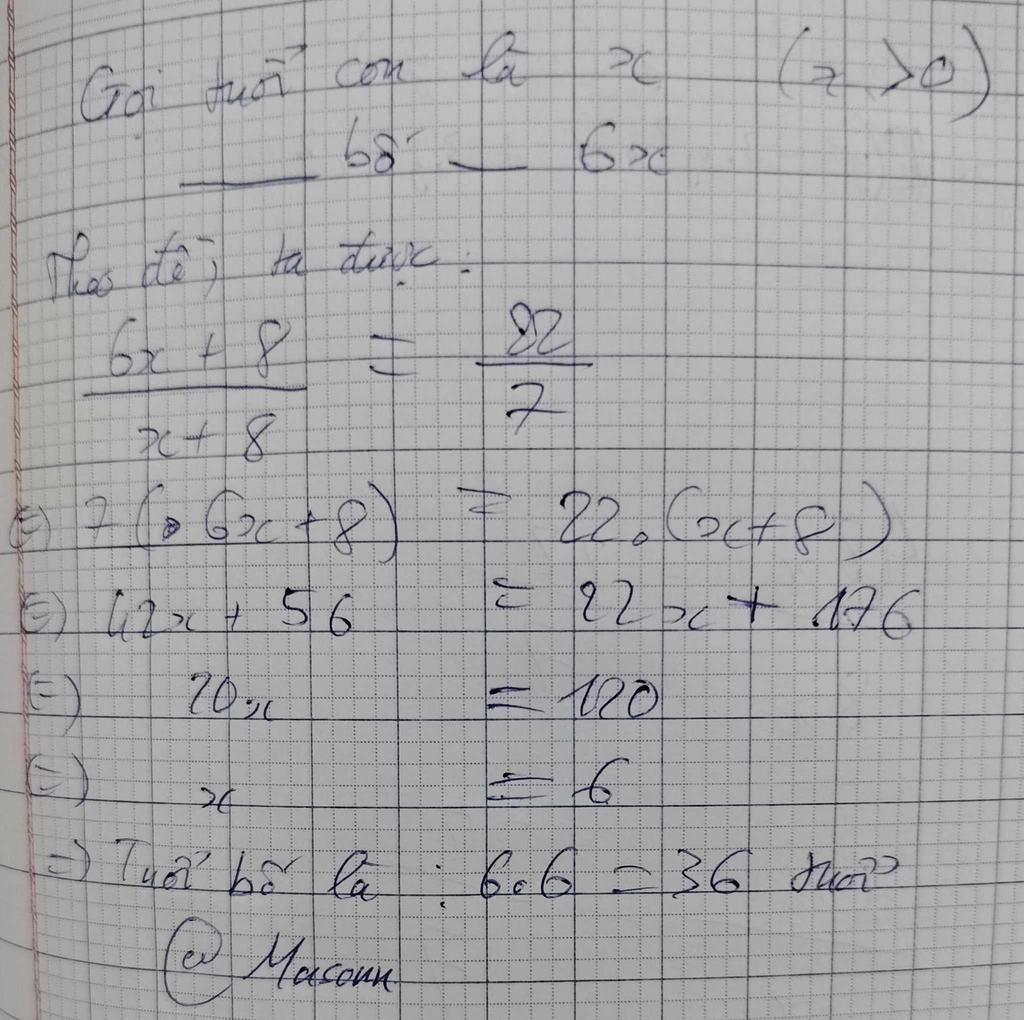 Gọi tuổi con là x (x > 0)
___ bố ___ 6x
Theo đề, ta được:
6x + 8 = 22
x + 8 7
(=) 7(6x + 8) = 22.(x + 8)
(=) 42x + 56 = 22x + 176
(=) 20x = 120
(=) x = 6
=) Tuổi bố là : 6.6 = 36 tuổi
@ Masonn